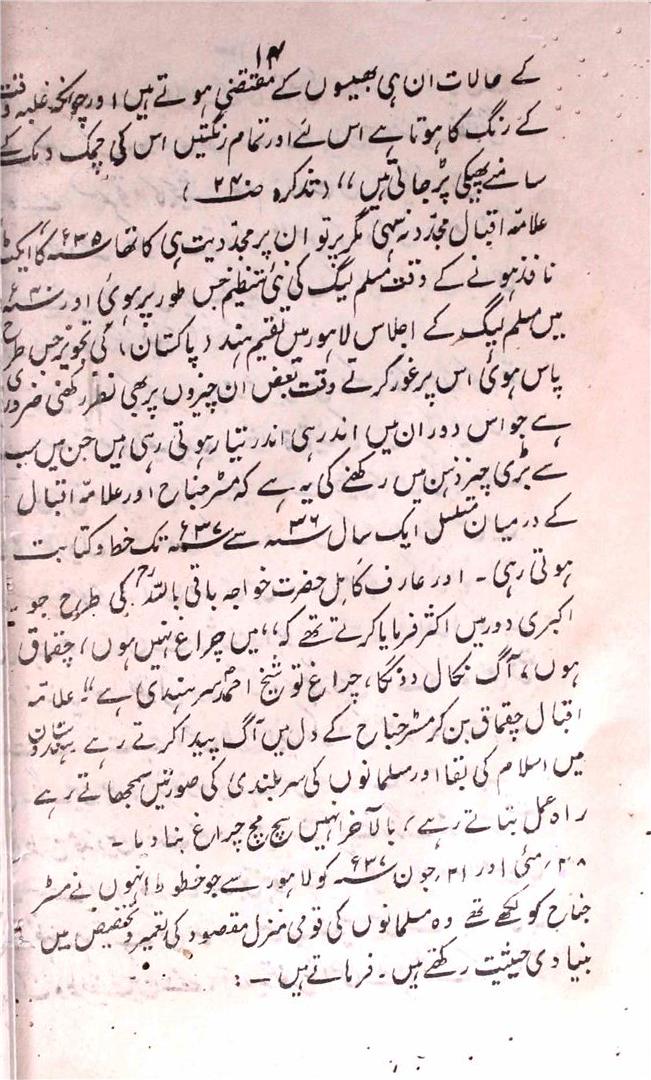 ۱۴
کے حالات ان ہی بھیسوں کے مقتضی ہوتے ہیں اور چونکہ غلبہ وقت
کے رنگ کا ہوتا ہے اس لئے اور تمام رنگتیں اس کی چمک دمک کے
سامنے پھیکی پڑ جاتی ہیں“ (تذکرہ صـ۲۴)
علامہ اقبال مجدد نہ سہی مگر پرتو ان پر مجددیت ہی کا تھا سنہ ۳۵ء کا ایکٹ
نافذ ہونے کے وقت مسلم لیگ کی نئی تنظیم جس طور پر ہوئی اور سنہ ۴۰ء
میں مسلم لیگ کے اجلاس لاہور میں تقسیم ہند (پاکستان) کی تجویز جس طرح
پاس ہوئی اس پر غور کرتے وقت بعض ان چیزوں پر بھی نظر رکھنی ضروری
ہے جو اس دوران میں اندر ہی اندر تیار ہوتی رہی ہیں جن میں سب
سے بڑی چیز ذہن میں رکھنے کی یہ ہے کہ مسٹر جناح اور علامہ اقبال
کے درمیان مسلسل ایک سال سنہ ۳۶ء سے سنہ ۳۷ء تک خط و کتابت
ہوتی رہی۔ اور عارف کامل حضرت خواجہ باقی باللہؒ کی طرح جو
اکبری دور میں اکثر فرمایا کرتے تھے کہ ”میں چراغ نہیں ہوں، چقماق
ہوں، آگ نکال دونگا، چراغ تو شیخ احمد سرہندی ہے“۔ علامہ
اقبال چقماق بن کر مسٹر جناح کے دل میں آگ پیدا کرتے رہے ہندوستان
میں اسلام کی بقا اور مسلمانوں کی سربلندی کی صورتیں سمجھاتے رہے
راہ عمل بتاتے رہے، بالآخر انہیں سچ مچ چراغ بنا دیا۔
۲۸؍مئی اور ۲۱؍جون سنہ ۳۷ء کو لاہور سے جو خطوط انہوں نے مسٹر
جناح کو لکھے تھے وہ مسلمانوں کی قومی منزل مقصود کی تعمیر و میں
بنیادی حیثیت رکھتے ہیں۔ فرماتے ہیں ۔: